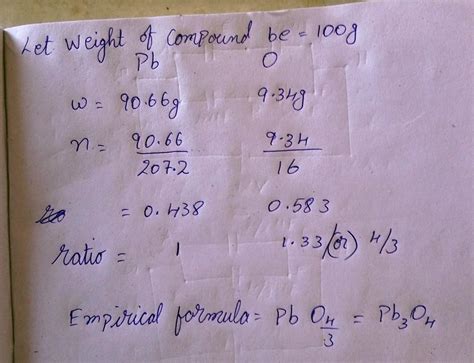 Let Weight of Compound be = 100g
Pb O
w = 90.66g 9.34g
n = 90.66/207.2 9.34/16
= 0.438 0.583
ratio = 1 1.33/(or) 4/3
Empirical formula = Pb O4/3 = Pb3O4